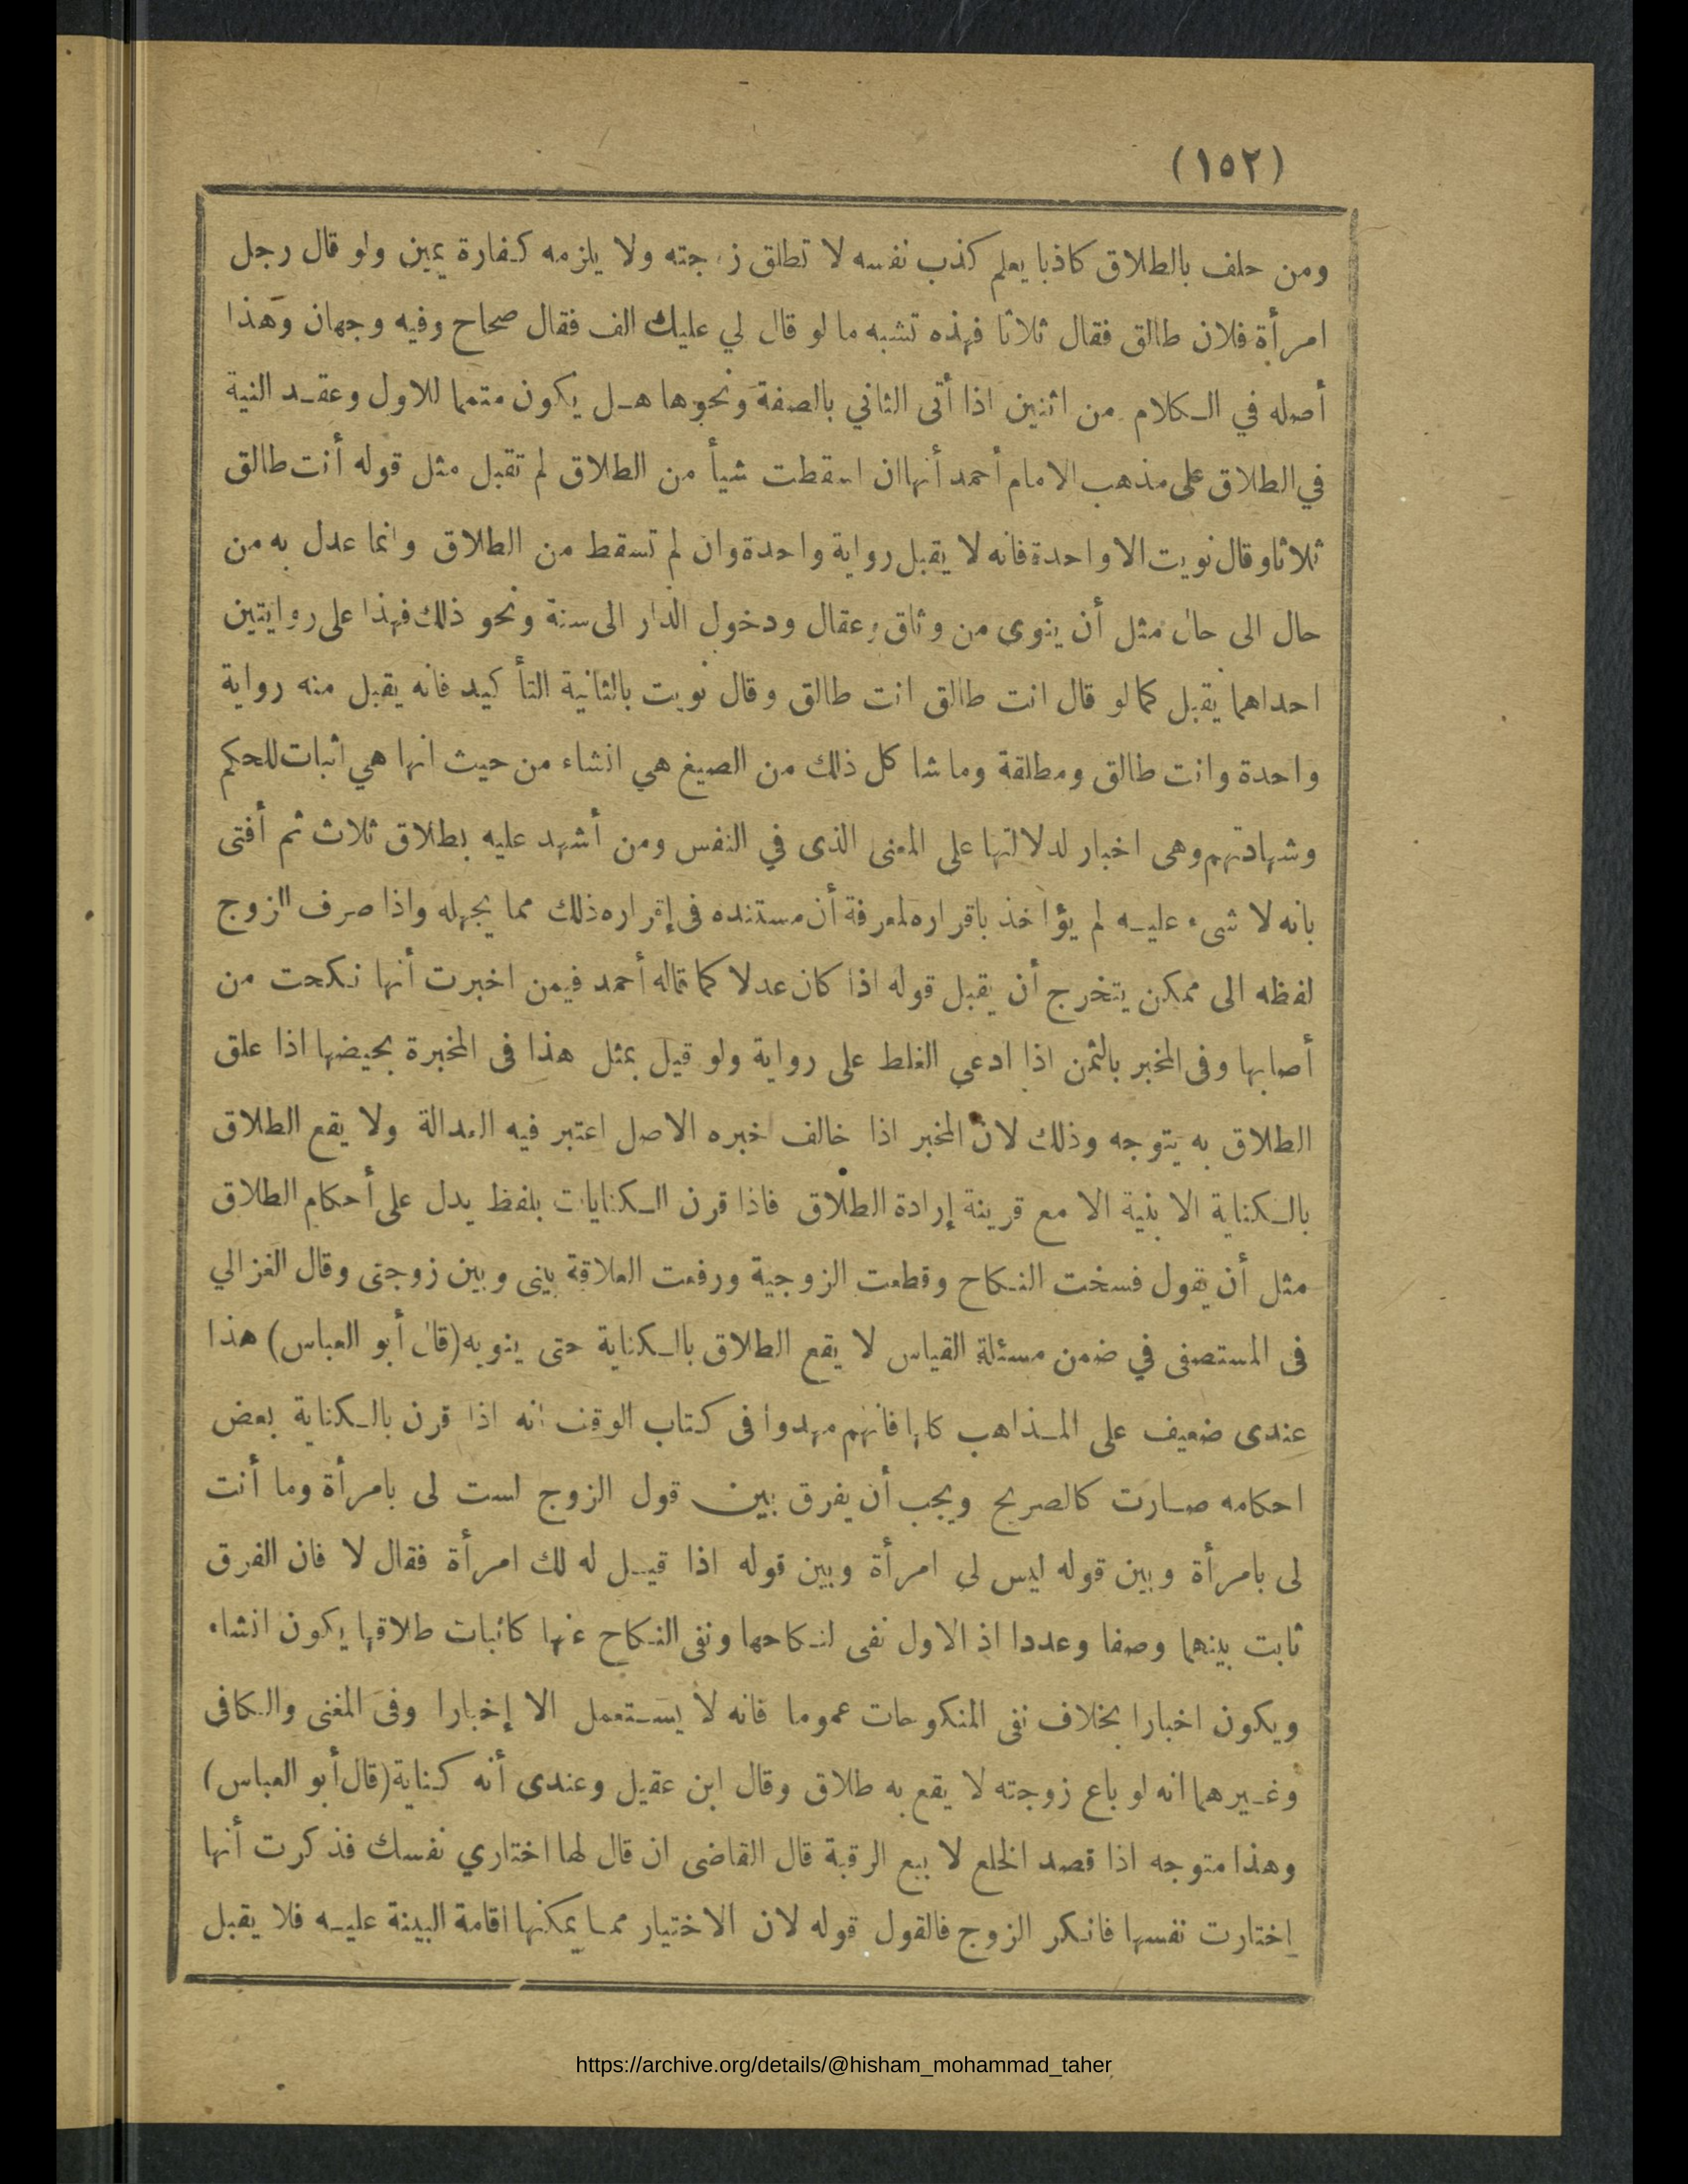 (١٥٢)
ومن حلف بالطلاق كاذبا يعلم كذب نفسه لا تطلق زوجته ولا يلزمه كفارة يمين ولو قال رجل
امرأة فلان طالق فقال ثلاثا فهذه تشبه ما لو قال لي عليك الف فقال صحاح وفيه وجهان وهذا
أصله في الكلام من اثنين اذا أتى الثاني بالصفة ونحوها هل يكون متمما للاول وعقد النية
في الطلاق على مذهب الامام أحمد أنها ان اسقطت شيأ من الطلاق لم تقبل مثل قوله أنت طالق
ثلاثا وقال نويت الا واحدة فانه لا يقبل رواية واحدة وان لم تسقط من الطلاق وانما عدل به من
حال الى حال مثل أن ينوى من وثاق وعقال ودخول الدار الى سنة ونحو ذلك فهذا على روايتين
احداهما يقبل كما لو قال انت طالق انت طالق وقال نويت بالثانية التأكيد فانه يقبل منه رواية
واحدة وانت طالق ومطلقة وما شا كل ذلك من الصيغ هي انشاء من حيث انها هي اثبات للحكم
وشهادتهم وهى اخبار لدلالتها على المعنى الذى في النفس ومن أشهد عليه بطلاق ثلاث ثم أفتى
بانه لا شىء عليه لم يؤاخذ باقراره لمعرفة أن مستنده فى إقراره ذلك مما يجهله واذا صرف الزوج
لفظه الى ممكن يتخرج أن يقبل قوله اذا كان عدلا كما قاله أحمد فيمن اخبرت أنها نكحت من
أصابها وفى المخبر بالثمن اذا ادعي الغلط على رواية ولو قيل بمثل هذا فى المخبرة بحيضها اذا علق
الطلاق به يتوجه وذلك لان المخبر اذا خالف خبره الاصل اعتبر فيه العدالة ولا يقع الطلاق
بالكناية الا بنية الا مع قرينة إرادة الطلاق فاذا قرن الكنايات بلفظ يدل على أحكام الطلاق
مثل أن يقول فسخت النكاح وقطعت الزوجية ورفعت العلاقة بينى وبين زوجتى وقال الغزالي
فى المستصفى في ضمن مسئلة القياس لا يقع الطلاق بالكناية حتى ينويه (قال أبو العباس) هذا
عندى ضعيف على المذاهب كلها فانهم مهدوا فى كتاب الوقف انه اذا قرن بالكناية بعض
احكامه صارت كالصريح ويجب أن يفرق بين قول الزوج لست لى بامرأة وما أنت
لى بامرأة وبين قوله ليس لى امرأة وبين قوله اذا قيل له لك امرأة فقال لا فان الفرق
ثابت بينهما وصفا وعددا اذ الاول نفى لنكاحها ونفى النكاح عنها كاثبات طلاقها يكون انشاء
ويكون اخبارا بخلاف نفى المنكوحات عموما فانه لا يستعمل الا إخبارا وفى المغنى والكافى
وغيرهما انه لو باع زوجته لا يقع به طلاق وقال ابن عقيل وعندى أنه كناية (قال أبو العباس)
وهذا متوجه اذا قصد الخلع لا بيع الرقبة قال القاضى ان قال لها اختاري نفسك فذكرت أنها
اختارت نفسها فانكر الزوج فالقول قوله لان الاختيار مما يمكنها اقامة البينة عليه فلا يقبل
https://archive.org/details/@hisham_mohammad_taher